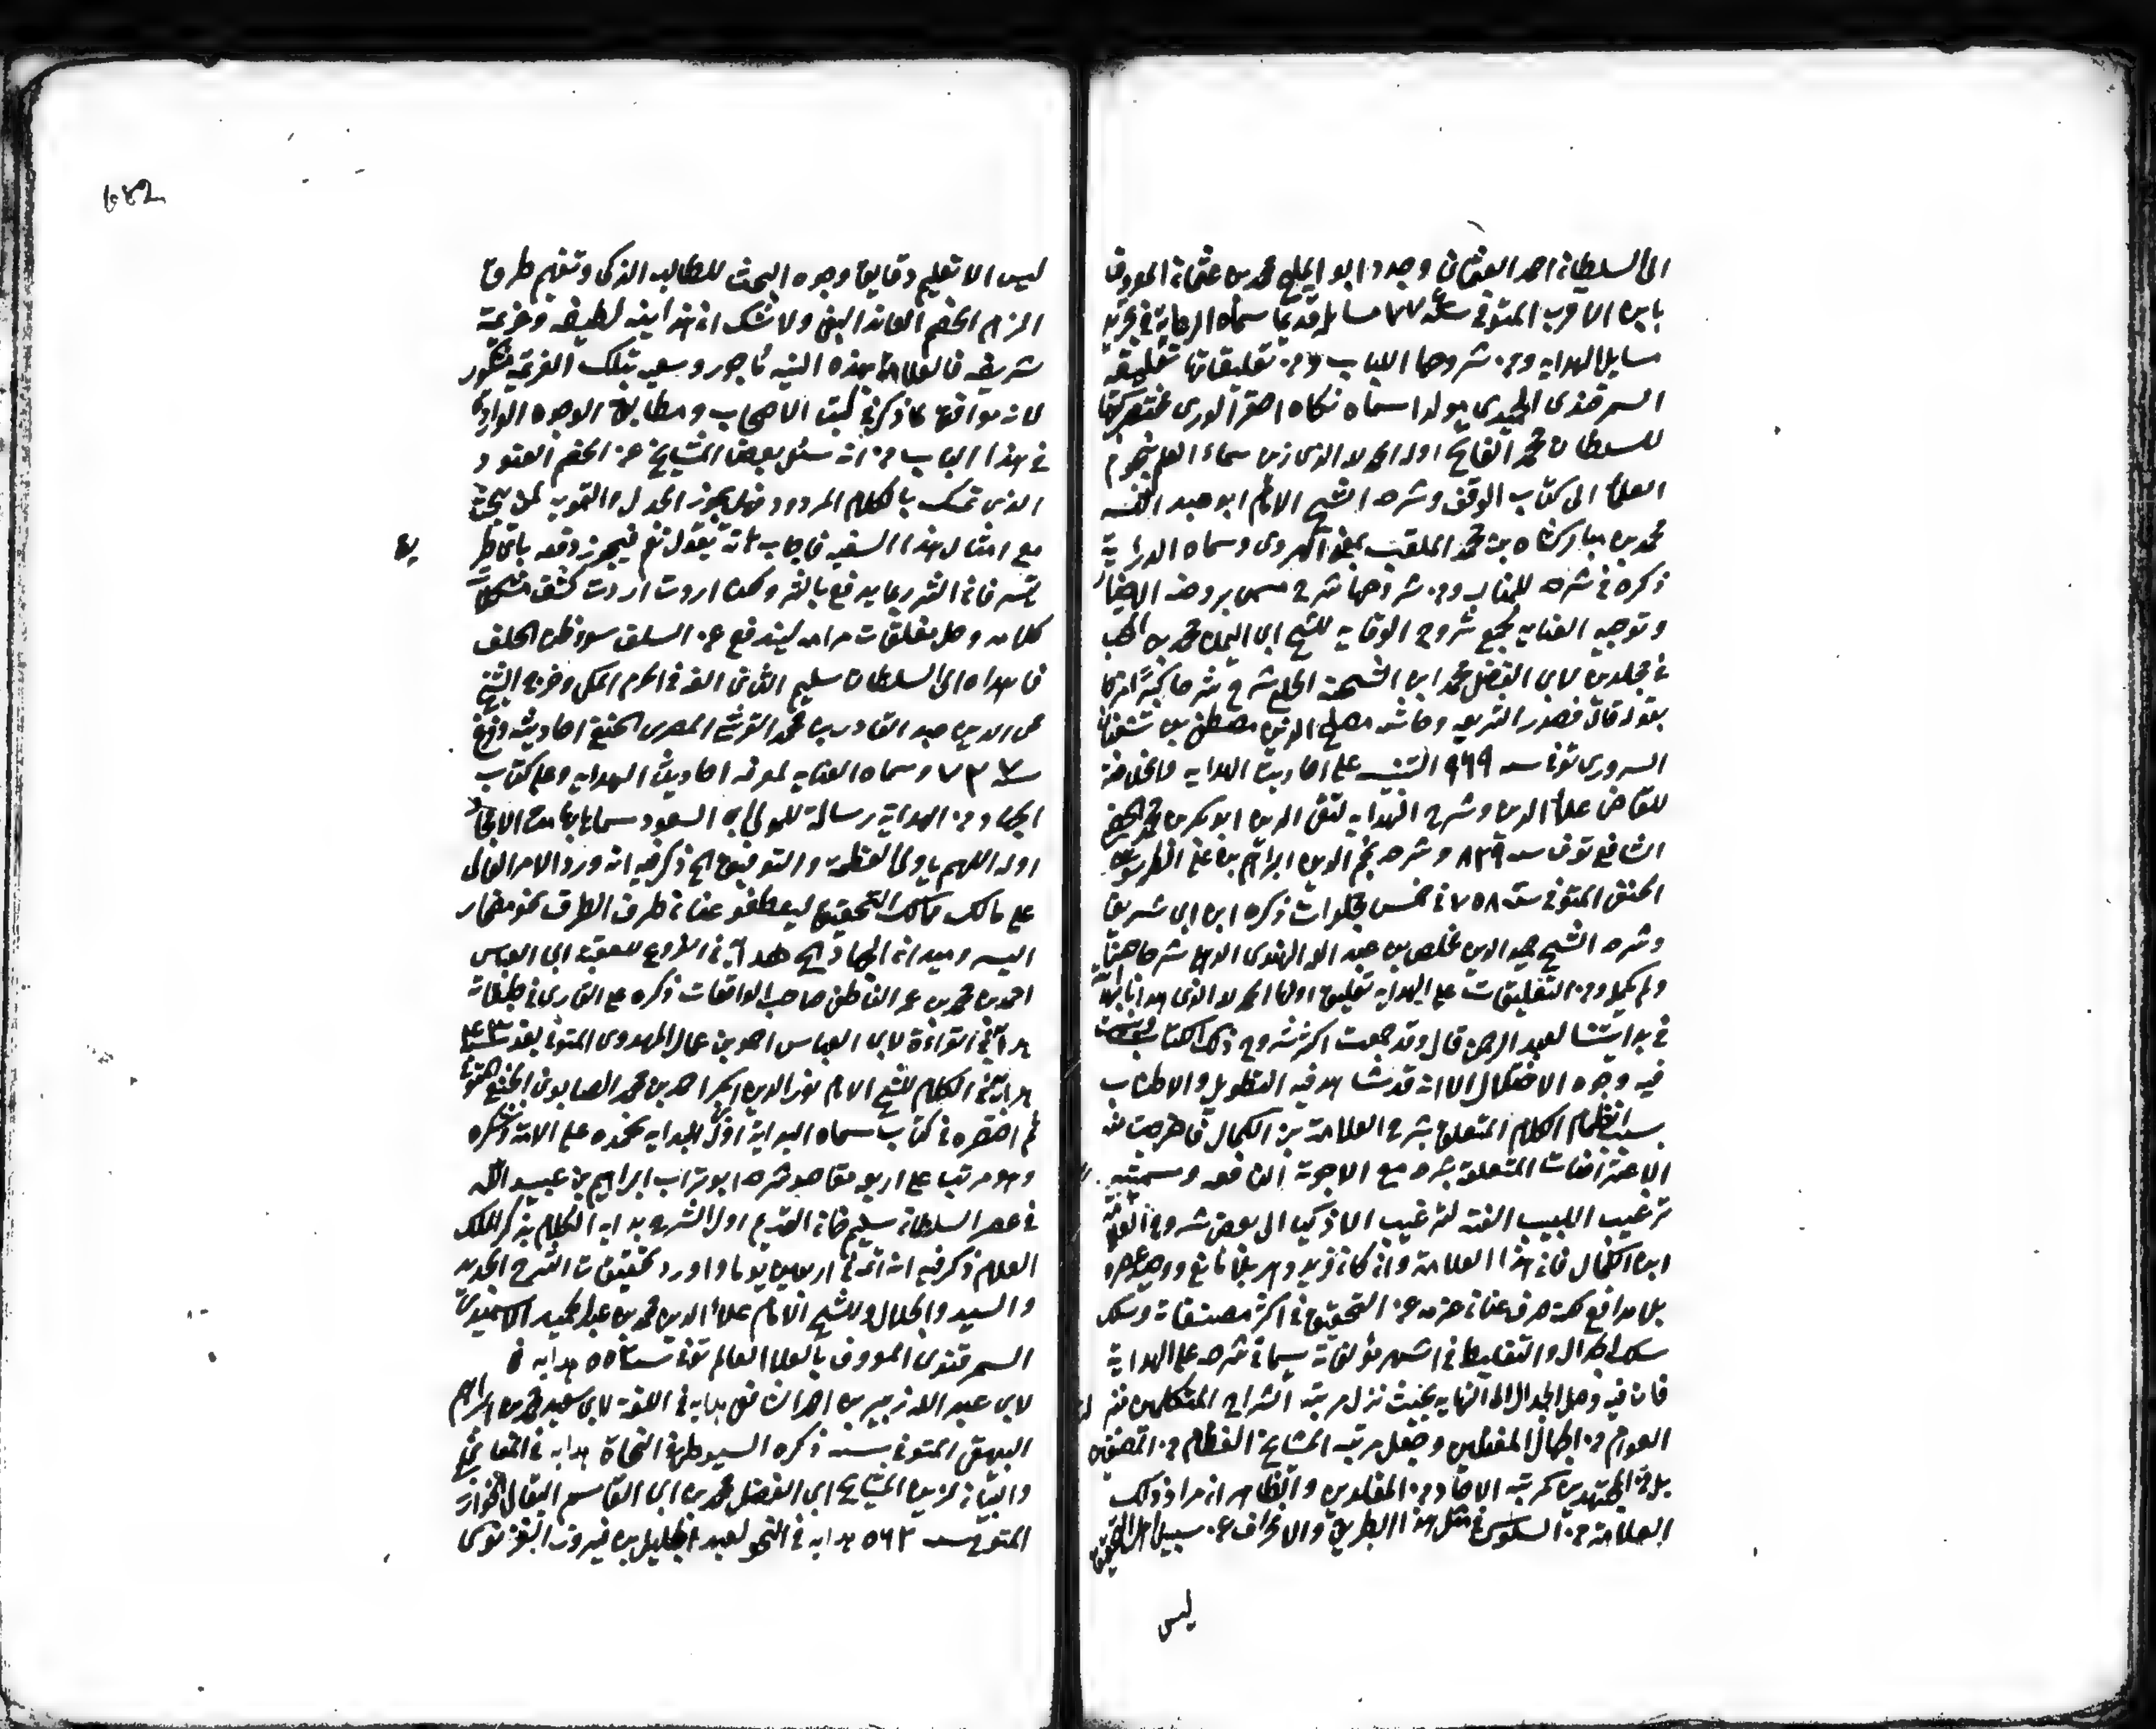 الى السلطان احمد العثماني وجرد ابو المليح محمد بن عثمان المعروف
بابن الاقرب المتوفى سنة ٧٧٤ مسايل قديما سماه الرعاية في تجريد
مسايل الهداية ومن شروحها اللباب ومن تعليقاتها تعليقة
السمرقندي الحميدي
للسلطان محمد الفاتح اوله الحمد لله الذي زين سماء العلم بنجوم
العلماء الى كتاب الوقف وشرحه الشيخ الامام ابو عبد الله
محمد بن مباركشاه بن محمد الملقب بمعين الهروي وسماه الدراية
ذكره في شرحه للمنار ومن شروحها شرح مسمى بروضة الاخيار
وتوجيه العناية لجمع شروح الوقاية للشيخ ابي اليمن محمد بن المحب
في مجلدين لابي الفضل محمد ابن الشحنة الحلبي شرح
بقوله قال فصدر الشريعة وحاشية مصلح الدين مصطفى بن شعبان
السروري توفى سنة ٩٦٩ التنبيه على احاديث الهداية والخلاصة
للقاضي علاء الدين وشرح الهداية لتقي الدين ابو بكر بن محمد الحصني
الشافعي توفى سنة ٨٢٩ وشرحه نجم الدين ابراهيم بن علي الطرسوسي
الحنفي المتوفى سنة ٧٥٨ في خمس مجلدات ذكره ابن ابي شريف
وشرحه الشيخ حميد الدين مخلص بن عبد الله الهندي الدهلوي شرحا حسنا
ولم يكمل ومن التعليقات على الهداية تعليق اوله الحمد لله الذي هدانا
في بدايتنا لعبد الرحمن قال وقد جمعت اكثر شروح ذلك الكتاب
فيه وجوه الاختلال الا انه قد شاهد فيه التطويل والاطناب
بسبب انضمام الكلام المتعلق بشرح العلامة بن الكمال فاخرجت منه
الاعتراضات المتعلقة بشرحه مع الاجوبة الدافعة وسميته
ترغيب اللبيب الفته لترغيب الاذكيا الى بعض شروح العلامة
ابن الكمال فان هذا العلامة وان كان فريد دهره بلا مانع ووحيد عصره
بلا مدافع لكنه صرف عنان عزمه عن التحقيق في اكثر مصنفاته وسلك
مسلك الجدال والتغليط في اشهر مؤلفاته سيما في شرحه على الهداية
فان فيه وصل الجدال الى النهاية بحيث نزل مرتبة الشراح المتكلمين
العوام من الجهال المغفلين وجعل مرتبة المشايخ العظام من المصنفين
بل من المجتهدين كمرتبة الاحاد من المقلدين والظاهر ان مراد ذلك
العلامة من السلوك في مثل هذا الطريق والانحراف عن سبيل اهل التحقيق
ليس
ليس الا تعليم دقايق وجوه البحث للطالب الذكي وتفهيم طرق
الزام الخصم المعاند الغبي ولا شك ان هذا نية لطيفة وعزيمة
شريفة فالعلامة بهذه النية مأجور وسعيه بتلك العزيمة مشكور
لانه موافق لما ذكر في كتب الاصحاب ومطابق الوجوه الواردة
في هذا الباب من انه سئل بعض المشايخ عن الخصم العنود
الذي تمسك بالكلام المردود فهل يجوز الجدل والتمويه لمن يبحث
مع امثال هذا السفيه فاجاب بانه يقول نعم فيجوز دفعه باي طريق
تيسر فان الشر ربما يدفع بالشر وكما اردت كشف مشكلات
كلامه وحل مغلقات مرامه ليندفع عن السلف سوء ظن الخلف
فاهداه الى السلطان سليم الثاني الفه في الحرم المكي وخرج الشيخ
محى الدين عبد القادر بن محمد القرشي المصري الحنفي احاديثه وفرغ
سنة ٧٣٧ وسماه العناية لمعرفة احاديث الهداية وعلى كتاب
الجهاد من الهداية رسالة للمولى ابو السعود سماها
اوله اللهم يا ولي العظمة والتوفيق الخ ذكر فيه انه ورد الامر العالي
على مالك ممالك التحقيق ليعطفو عنان طرف الطرف نحو مضمار
السير وميدان الجهاد الخ هداية في الفروع للفقيه ابي العباس
احمد بن محمد بن عمر الناطفي صاحب الواقعات ذكره على القاري في طبقاته
هداية في القراءة لابي العباس احمد بن عمار المهدوي المتوفى بعد سنة ٤٣٠
هداية في الكلام للشيخ الامام نور الدين احمد بن محمد الصابوني الحنفي
ثم اختصره في كتاب سماه البداية اول الهداية نحمده على الائه ونشكره
وهو مرتب على اربع مقاصد شرحه ابو تراب ابراهيم بن عبيد الله
في عصر السلطان سليم خان القديم اول الشرح بداية الكلام بذكر الملك
العلام ذكر فيه انه اتمه في اربعين يوما واورد تحقيقات الشرح الجديد
والسيد والجلال وللشيخ الامام علاء الدين محمد بن عبد الحميد الاسمندي
السمرقندي المعروف بالعلا العالم توفى سنة ٥٥٢ هداية في
لابي عبد الله زبير بن احمد الشافعي هداية في اللغة لابي سعيد محمد بن ابراهيم
البيهقي المتوفى سنة ذكره السيوطي في النحاة هداية في المعاني
والبيان لزين المشايخ ابي الفضل محمد بن ابي القاسم البقالي الخوارزمي
المتوفى سنة ٥٦٢ هداية في النحو لعبد الجليل بن فيروز الغزنوي